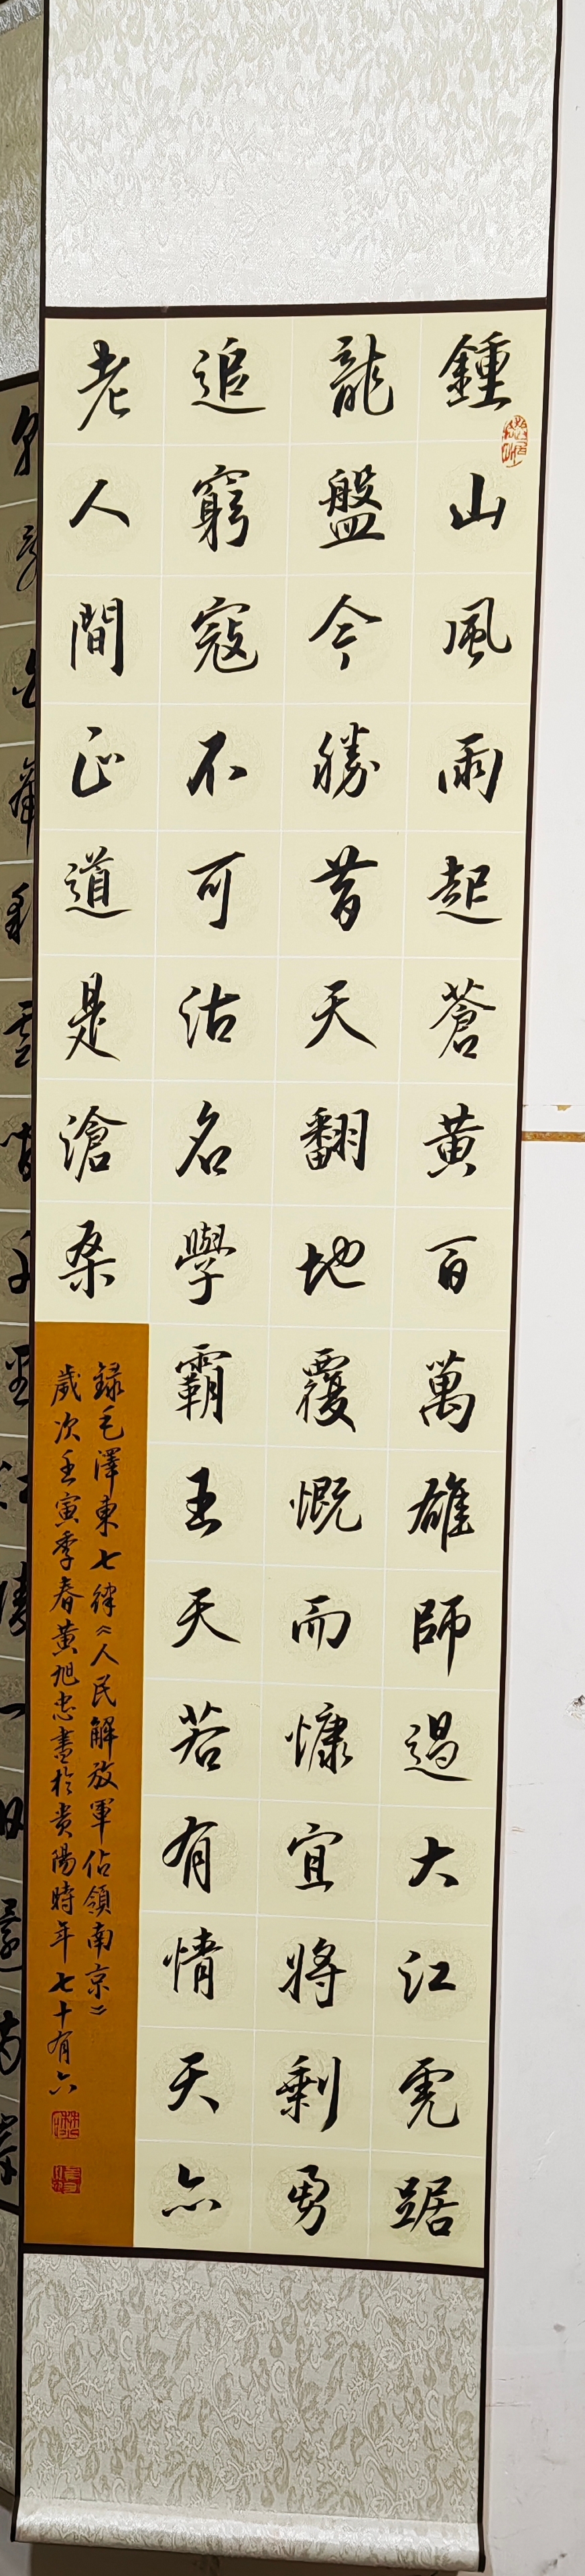 鍾山風雨起蒼黄百萬雄師過大江虎踞
龍盤今勝昔天翻地覆慨而慷宜將剩勇
追窮寇不可沽名學霸王天若有情天亦
老人間正道是滄桑
録毛澤東七律《人民解放軍佔領南京》
歲次壬寅季春黄旭忠書於贵陽時年七十有六